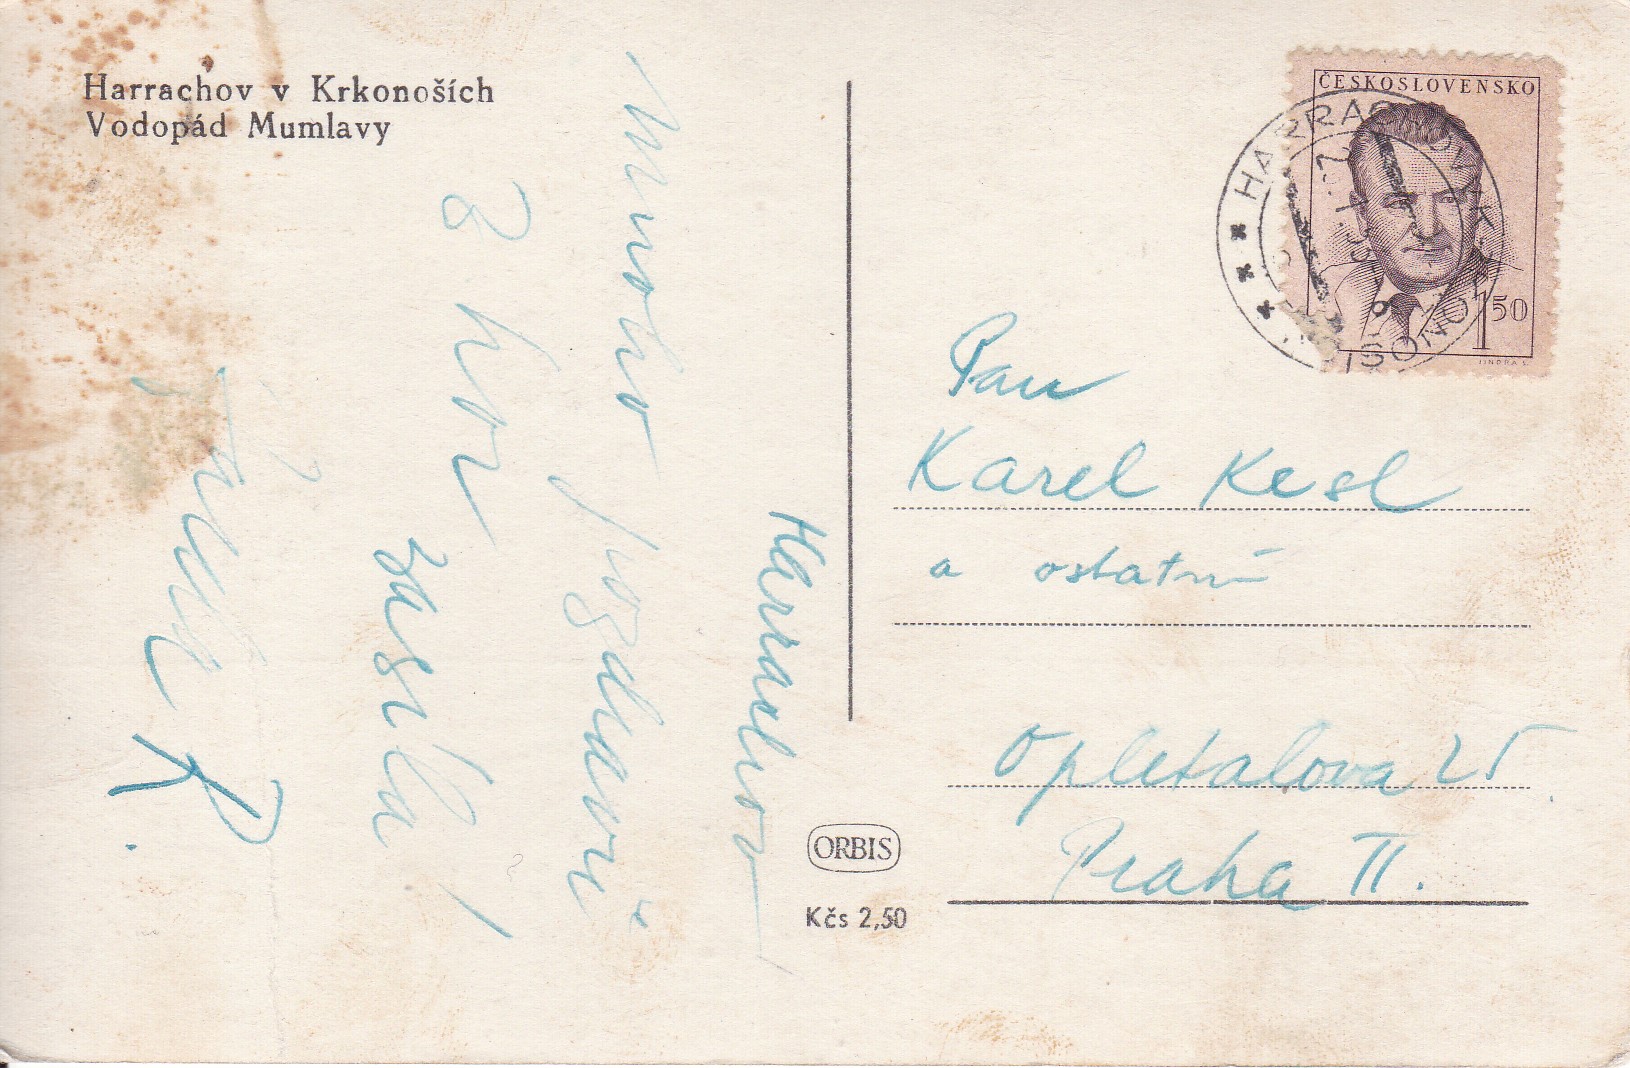 Harrachov v Krkonoších
Vodopád Mumlavy
Harrachov
Mnoho pozdravů
z hor
zasílá
R.
ČESKOSLOVENSKO
1 50
JINDRA S.
HARRACHOV
Pan
Karel Kesl
a ostatní
Opletalova 25
Praha II.
ORBIS
Kčs 2,50